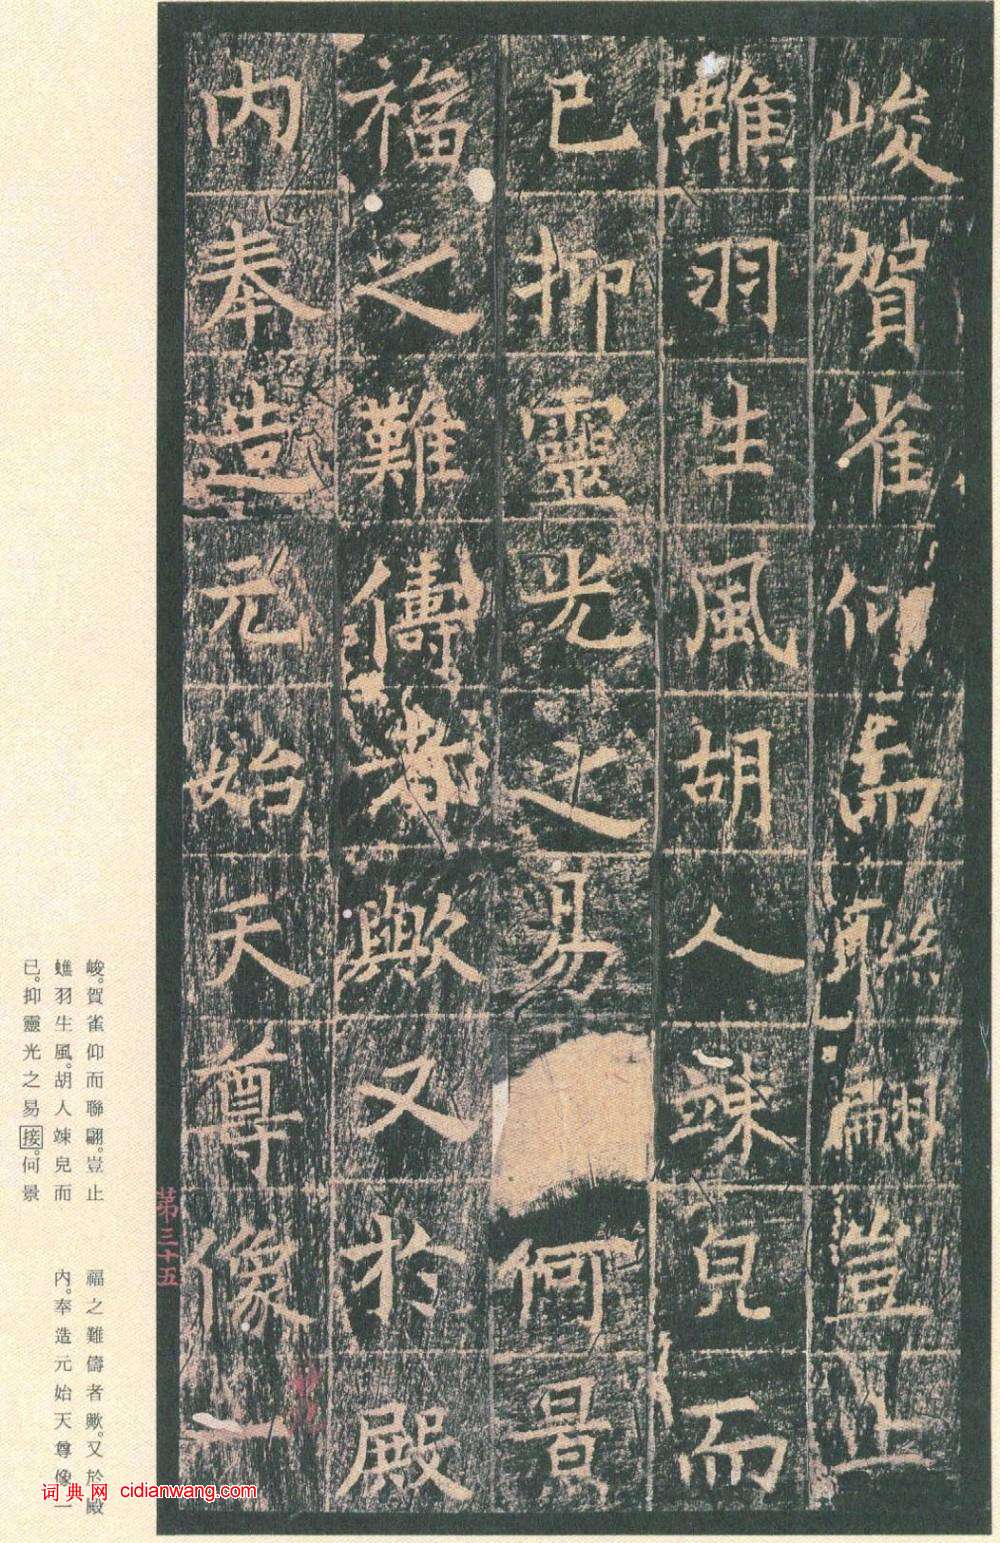 峻賀雀仰而聯翩豈止
蟭羽生風胡人竦皃而
已抑靈光之易何景
福之難儔者歟又於殿
内奉造元始天尊像一
第三十五
峻。賀雀仰而聯翩。豈止
蟭羽生風。胡人竦皃而
已。抑靈光之易接。何景
福之難儔者歟。又於殿
内。奉造元始天尊像一
词典网 cidianwang.com